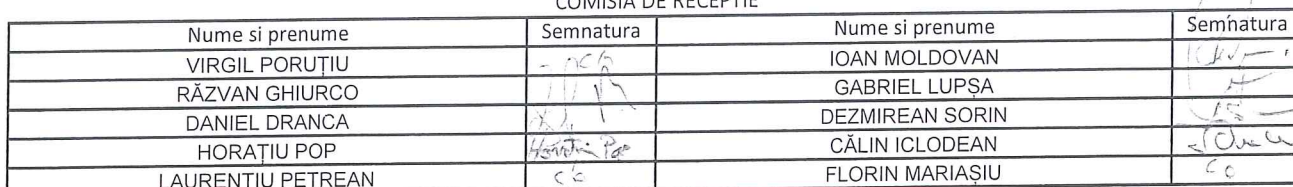 COMISIA DE RECEPTIE
Nume si prenume Semnatura Nume si prenume Semnatura
VIRGIL PORUȚIU IOAN MOLDOVAN
RĂZVAN GHIURCO GABRIEL LUPȘA
DANIEL DRANCA DEZMIREAN SORIN
HORAȚIU POP Horatiu Pop CĂLIN ICLODEAN
LAURENTIU PETREAN FLORIN MARIAȘIU